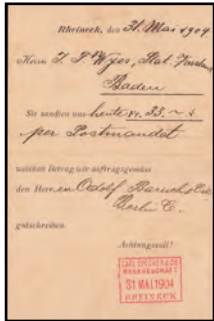 Rheineck, den 31. Mai 1904
Herrn J. J. Wyss, Stat. Vorstand
Baden
Sie sandten uns heute Fr. 33.~
per Postmandat
welchen Betrag wir auftragsgemäss
den Herren Adolf Baruch &
Berlin C.
gutschreiben.
Achtungsvoll!
CARL SPECKER & CIE
BANKGESCHÄFT
31 MAI 1904
RHEINECK